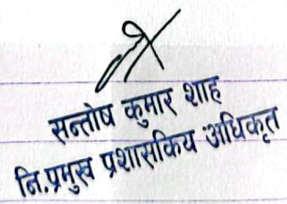 सन्तोष कुमार शाह
नि.प्रमुख प्रशासकिय अधिकृत